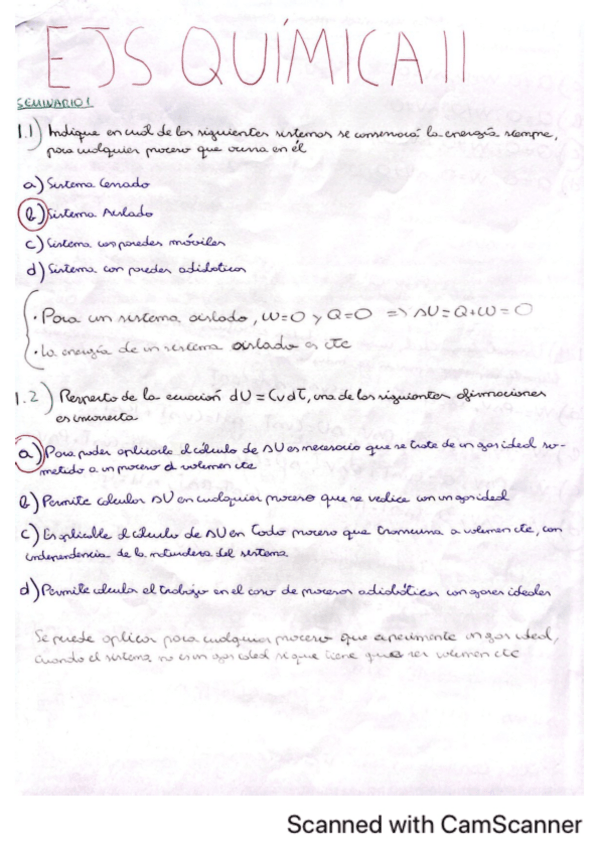 EJS QUÍMICA II
SEMINARIO 1
1.1) Indique en cuál de los siguientes sistemas se conservará la energía siempre,
para cualquier proceso que ocurra en él
a) Sistema Cerrado
b) Sistema Aislado
c) Sistema con paredes móviles
d) Sistema con paredes adiabáticas
· Para un sistema aislado, W=0 y Q=0 => ΔU=Q+W=0
· La energía de un sistema aislado es cte
1.2) Respecto de la ecuación dU = CvdT, una de las siguientes afirmaciones
es incorrecta
a) Para poder aplicarla al cálculo de ΔU es necesario que se trate de un gas ideal so-
metido a un proceso a volumen cte
b) Permite calcular ΔU en cualquier proceso que se realice con un gas ideal
c) Es aplicable al cálculo de ΔU en todo proceso que transcurra a volumen cte, con
independencia de la naturaleza del sistema.
d) Permite calcular el trabajo en el caso de procesos adiabáticos con gases ideales
Se puede aplicar para cualquier proceso que experimente un gas ideal,
cuando el sistema no es un gas ideal sí que tiene que ser volumen cte
Scanned with CamScanner